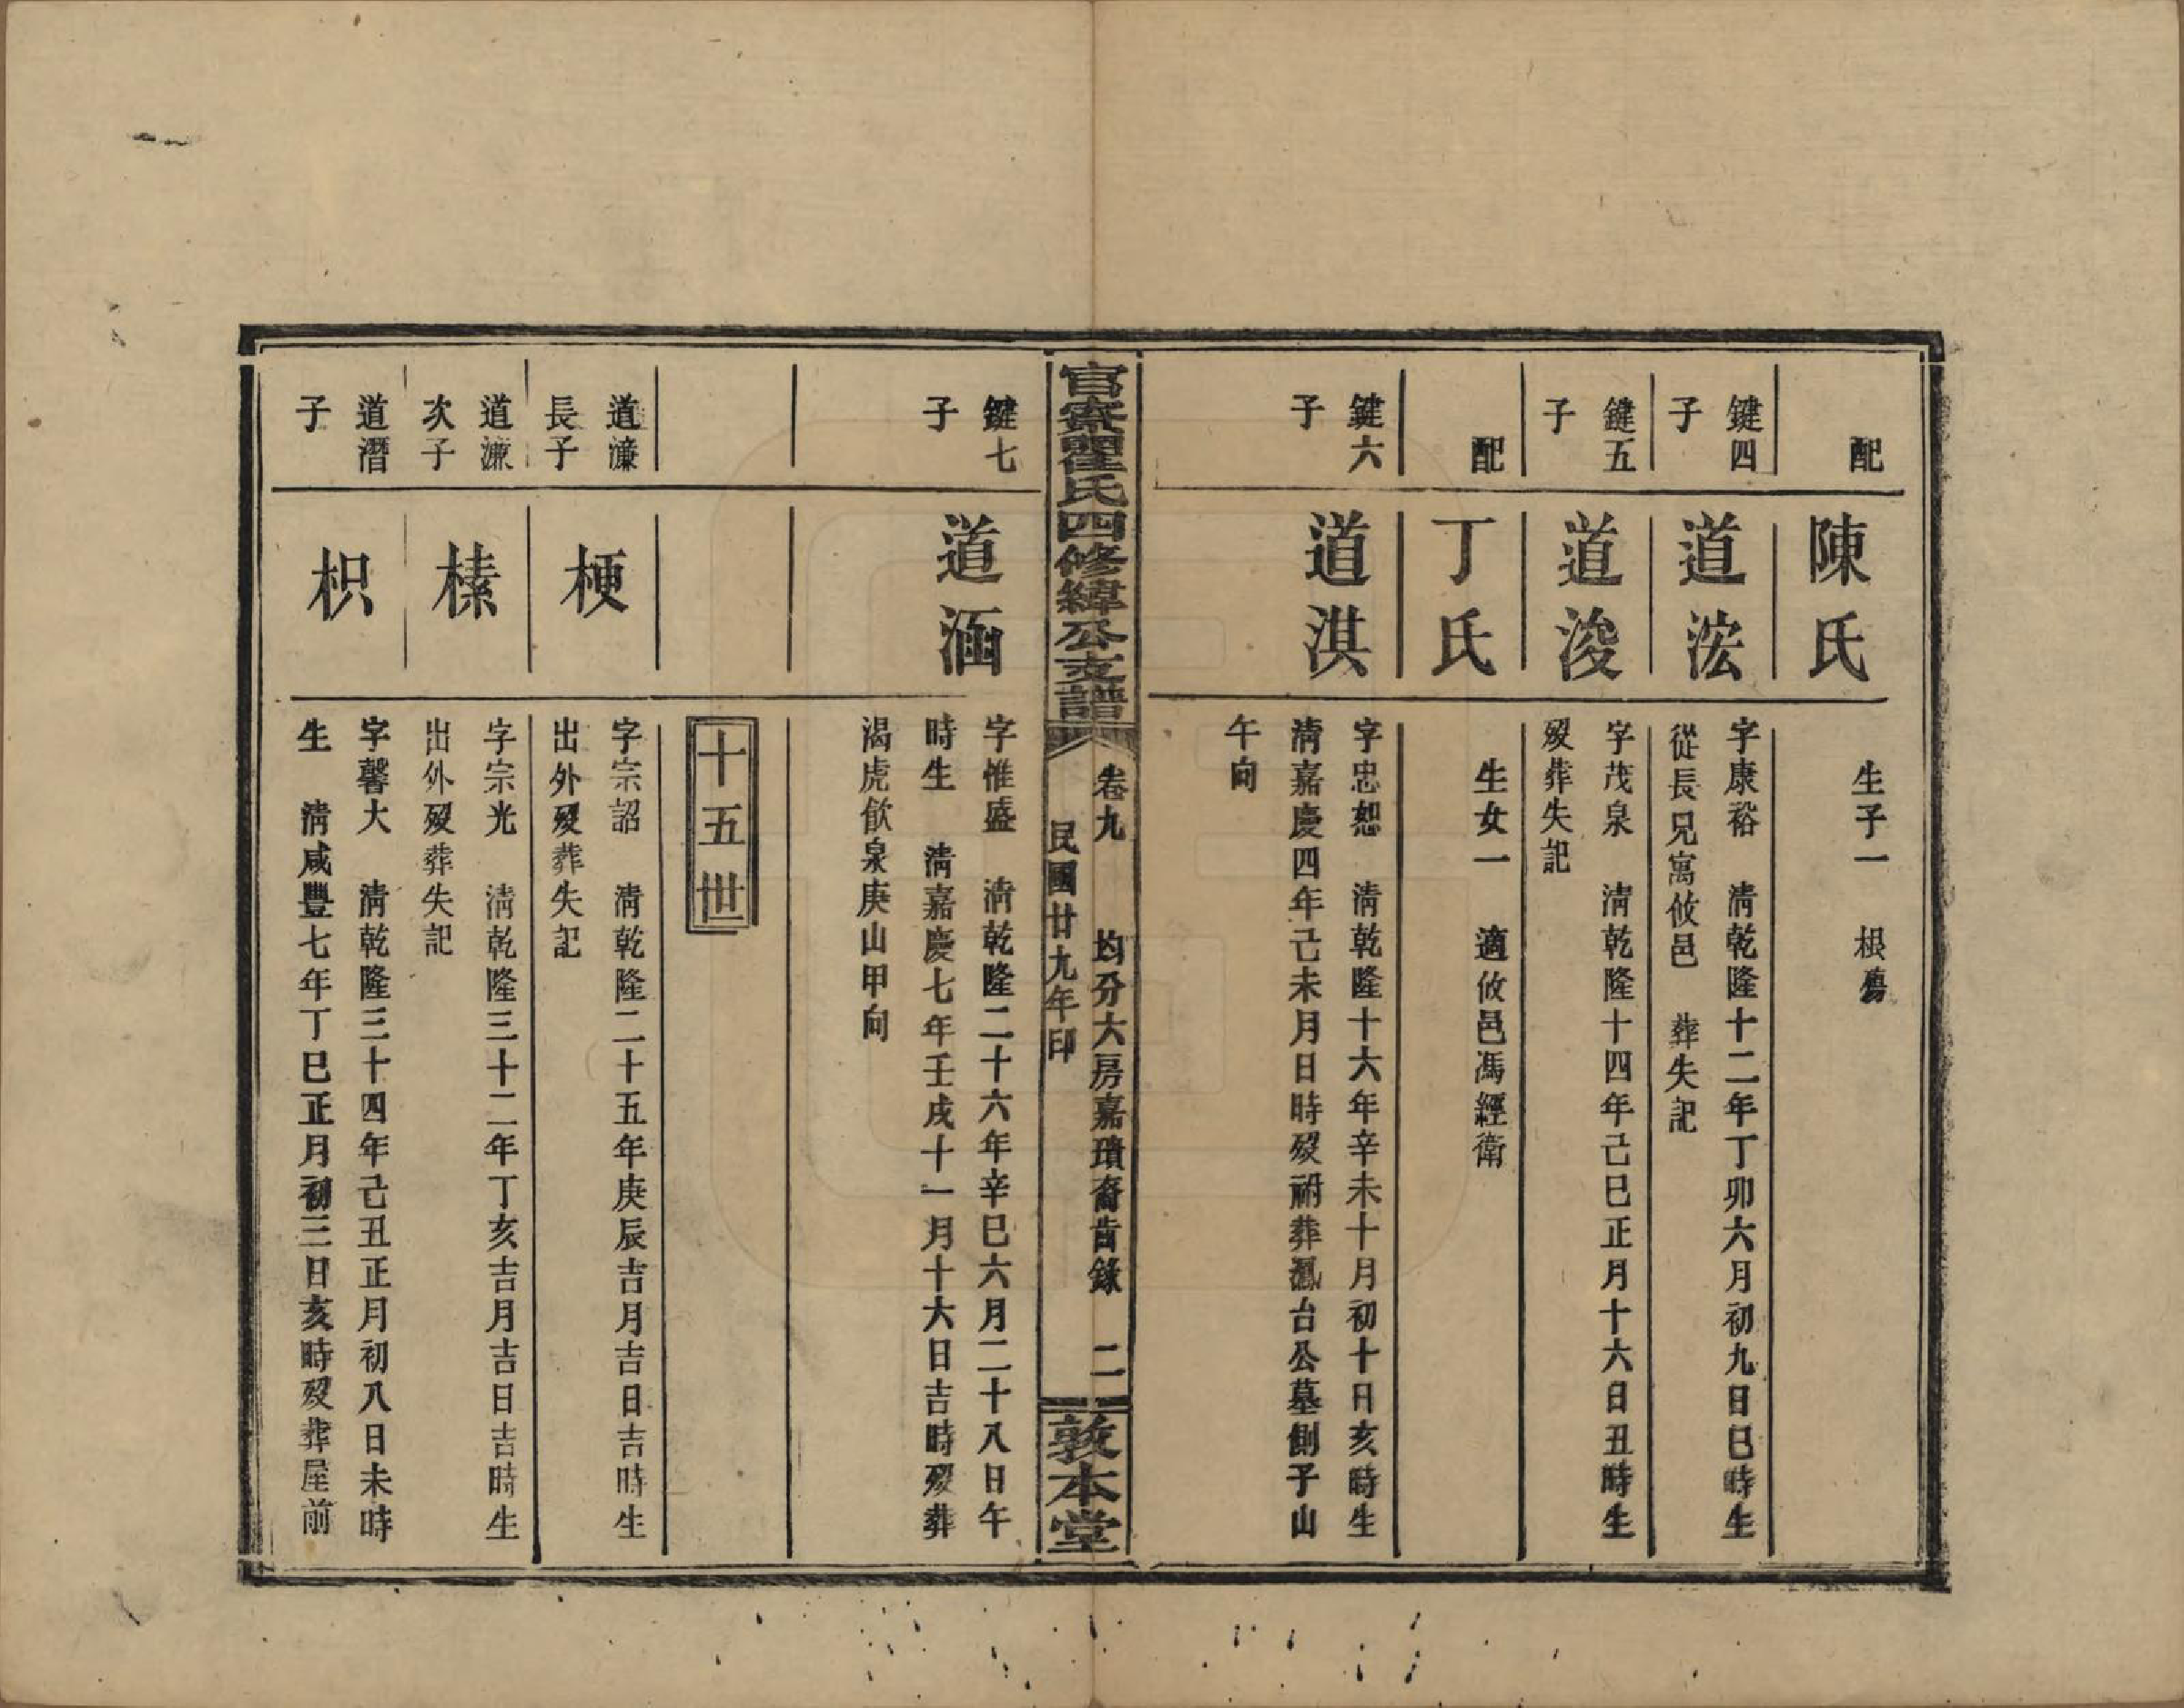 配
陳氏
生子一　根殤
鍵四
子
道浤
字康裕　清乾隆十二年丁卯六月初九日巳時生
從長兄寓攸邑　葬失記
鍵五
子
道浚
字茂泉　清乾隆十四年己巳正月十六日丑時生
歿葬失記
配
丁氏
生女一　適攸邑馮經衛
鍵六
子
道淇
字忠恕　清乾隆十六年辛未十月初十日亥時生
清嘉慶四年己未月日時歿祔葬鳳台公墓側子山
午向
官寮瞿氏四修緯公支譜
卷九　均分六房嘉璜裔齒錄　二
民國廿九年印
敦本堂
鍵七
子
道涵
字惟盛　清乾隆二十六年辛巳六月二十八日午
時生　清嘉慶七年壬戌十一月十六日吉時歿葬
渴虎飲泉庚山甲向
十五世
道濂
長子
梗
字宗詔　清乾隆二十五年庚辰吉月吉日吉時生
出外歿葬失記
道濂
次子
榛
字宗光　清乾隆三十二年丁亥吉月吉日吉時生
出外歿葬失記
道潛
子
枳
字馨大　清乾隆三十四年己丑正月初八日未時
生　清咸豐七年丁巳正月初三日亥時歿葬屋前